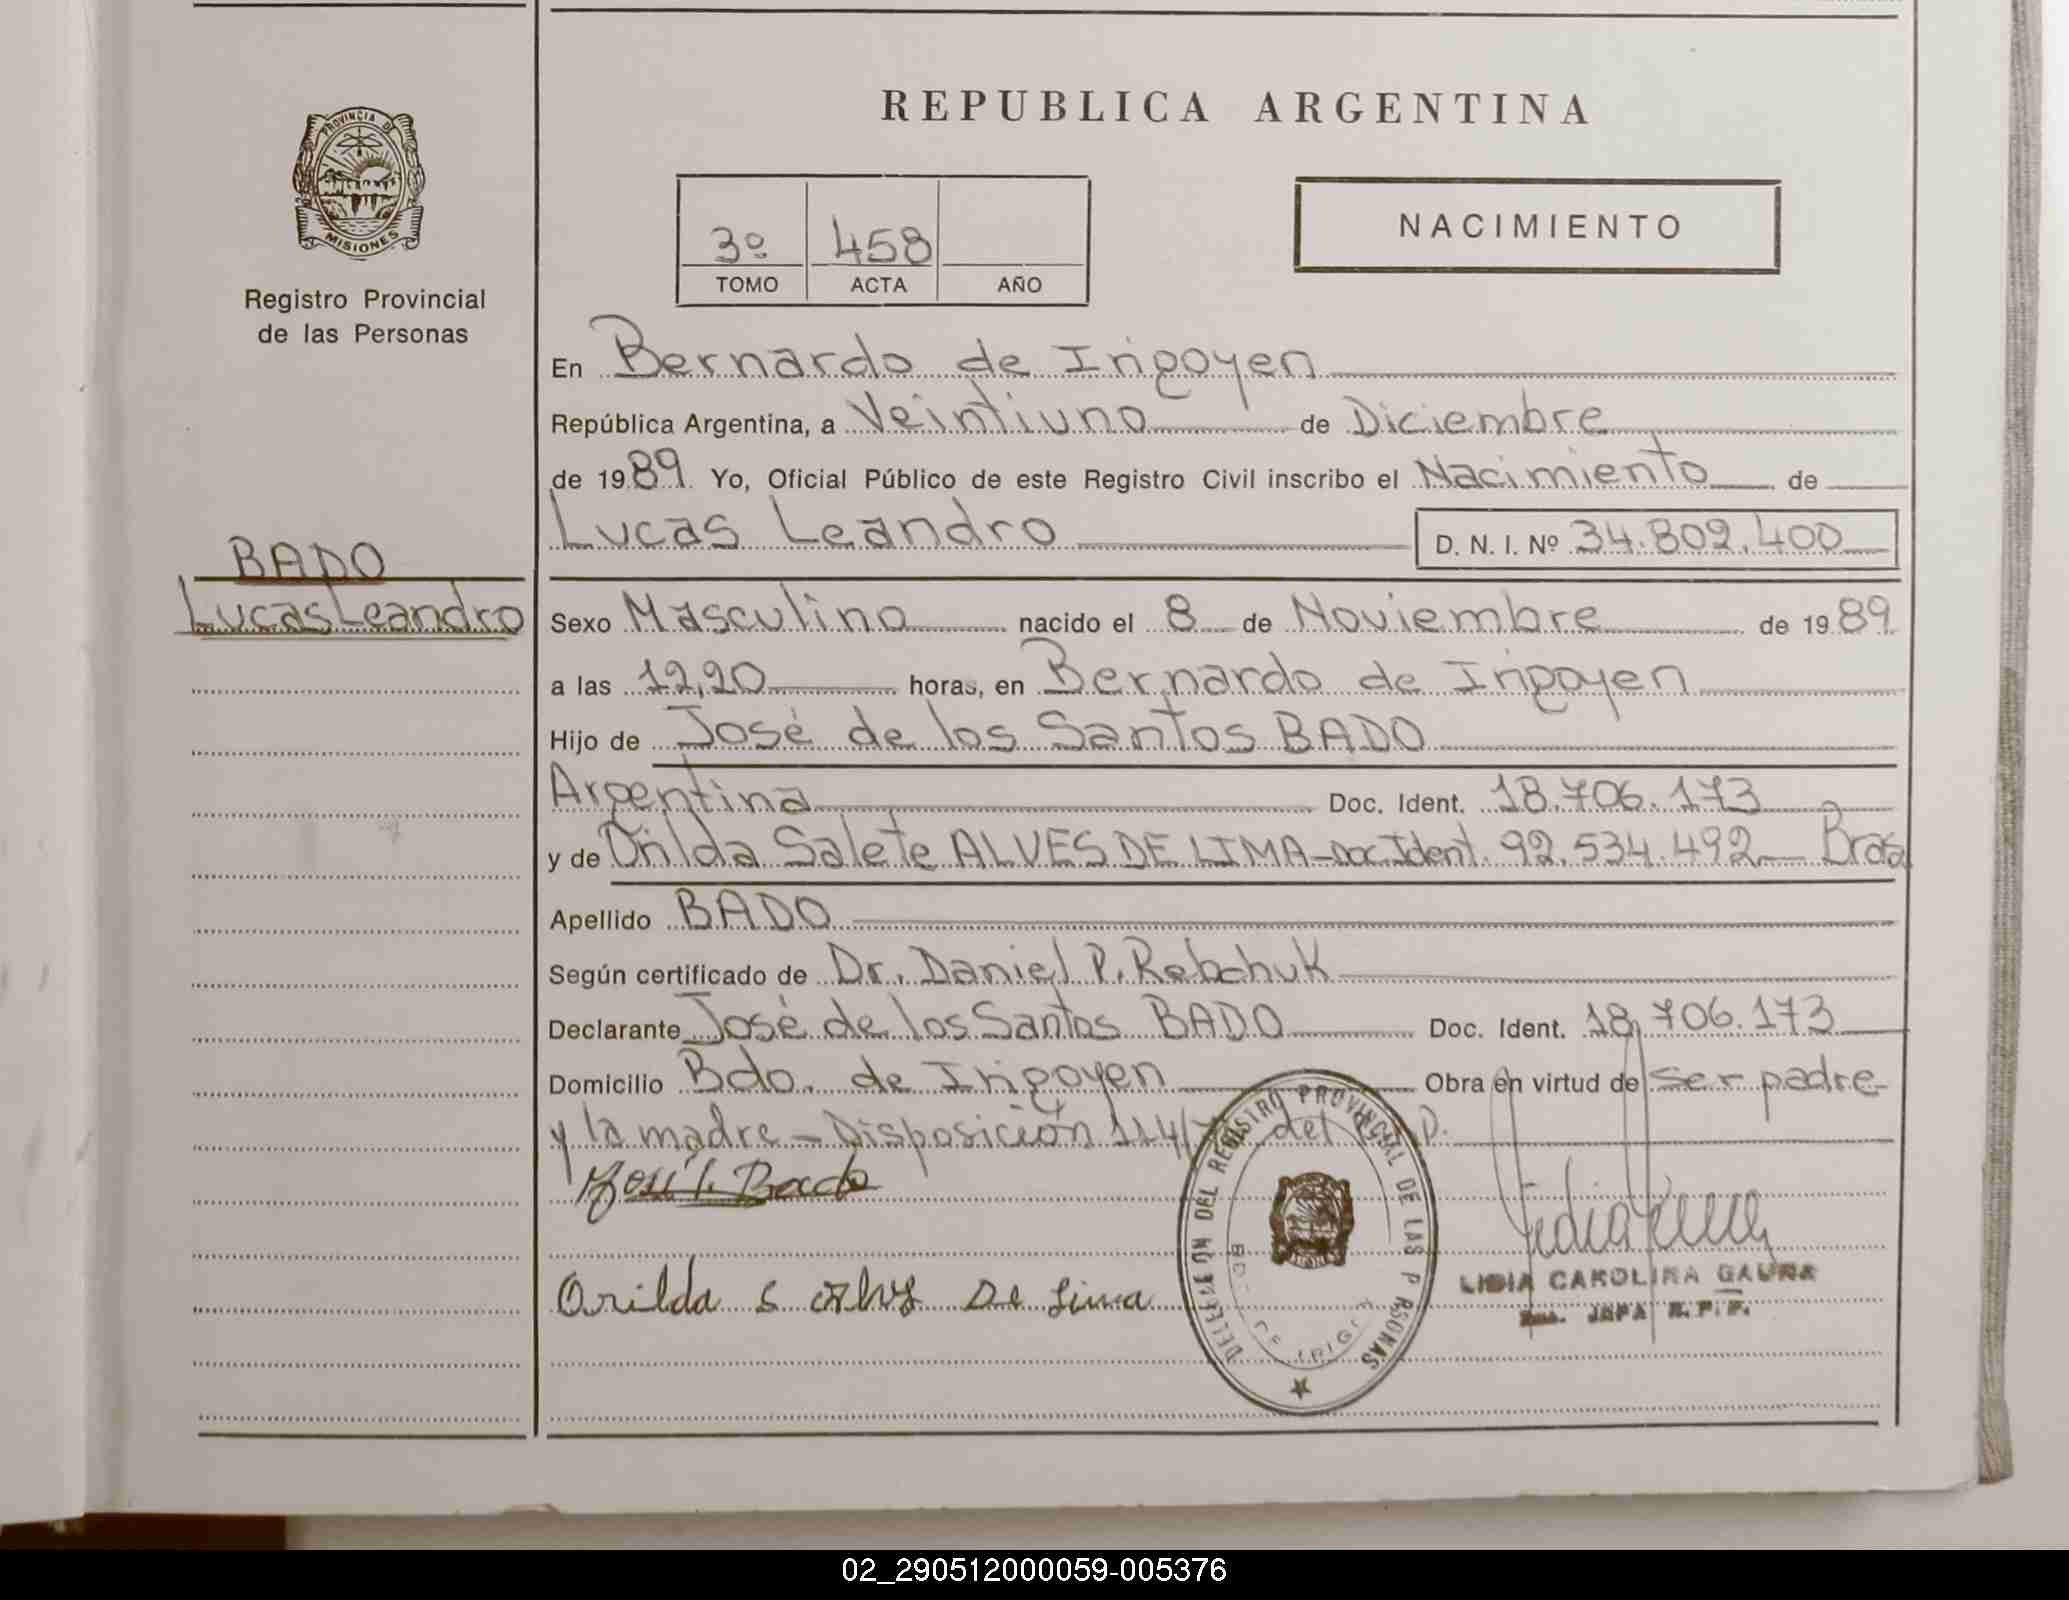 REPUBLICA ARGENTINA
PROVINCIA DE
MISIONES
Registro Provincial
de las Personas
3º 458
TOMO ACTA AÑO
NACIMIENTO
En Bernardo de Irigoyen
República Argentina, a Veintiuno de Diciembre
de 1989 Yo, Oficial Público de este Registro Civil inscribo el Nacimiento de
Lucas Leandro D. N. I. Nº 34.802.400
BADO
Lucas Leandro
Sexo Masculino nacido el 8 de Noviembre de 1989
a las 12,20 horas, en Bernardo de Irigoyen
Hijo de José de los Santos BADO
Argentina Doc. Ident. 18.706.173
y de Orilda Salete ALVES DE LIMA - Doc. Ident. 92.534.492 Brasi
Apellido BADO
Según certificado de Dr. Daniel P. Rebchuk
Declarante José de los Santos BADO Doc. Ident. 18.706.173
Domicilio Bdo. de Irigoyen Obra en virtud de ser padre
y la madre - Disposición 114/ del
José Bado
Orilda S De Lima
DELEGACION DEL REGISTRO PROVINCIAL DE LAS PERSONAS
LIDIA CAROLINA GAUNA
JEFA R. P. P.
02_290512000059-005376